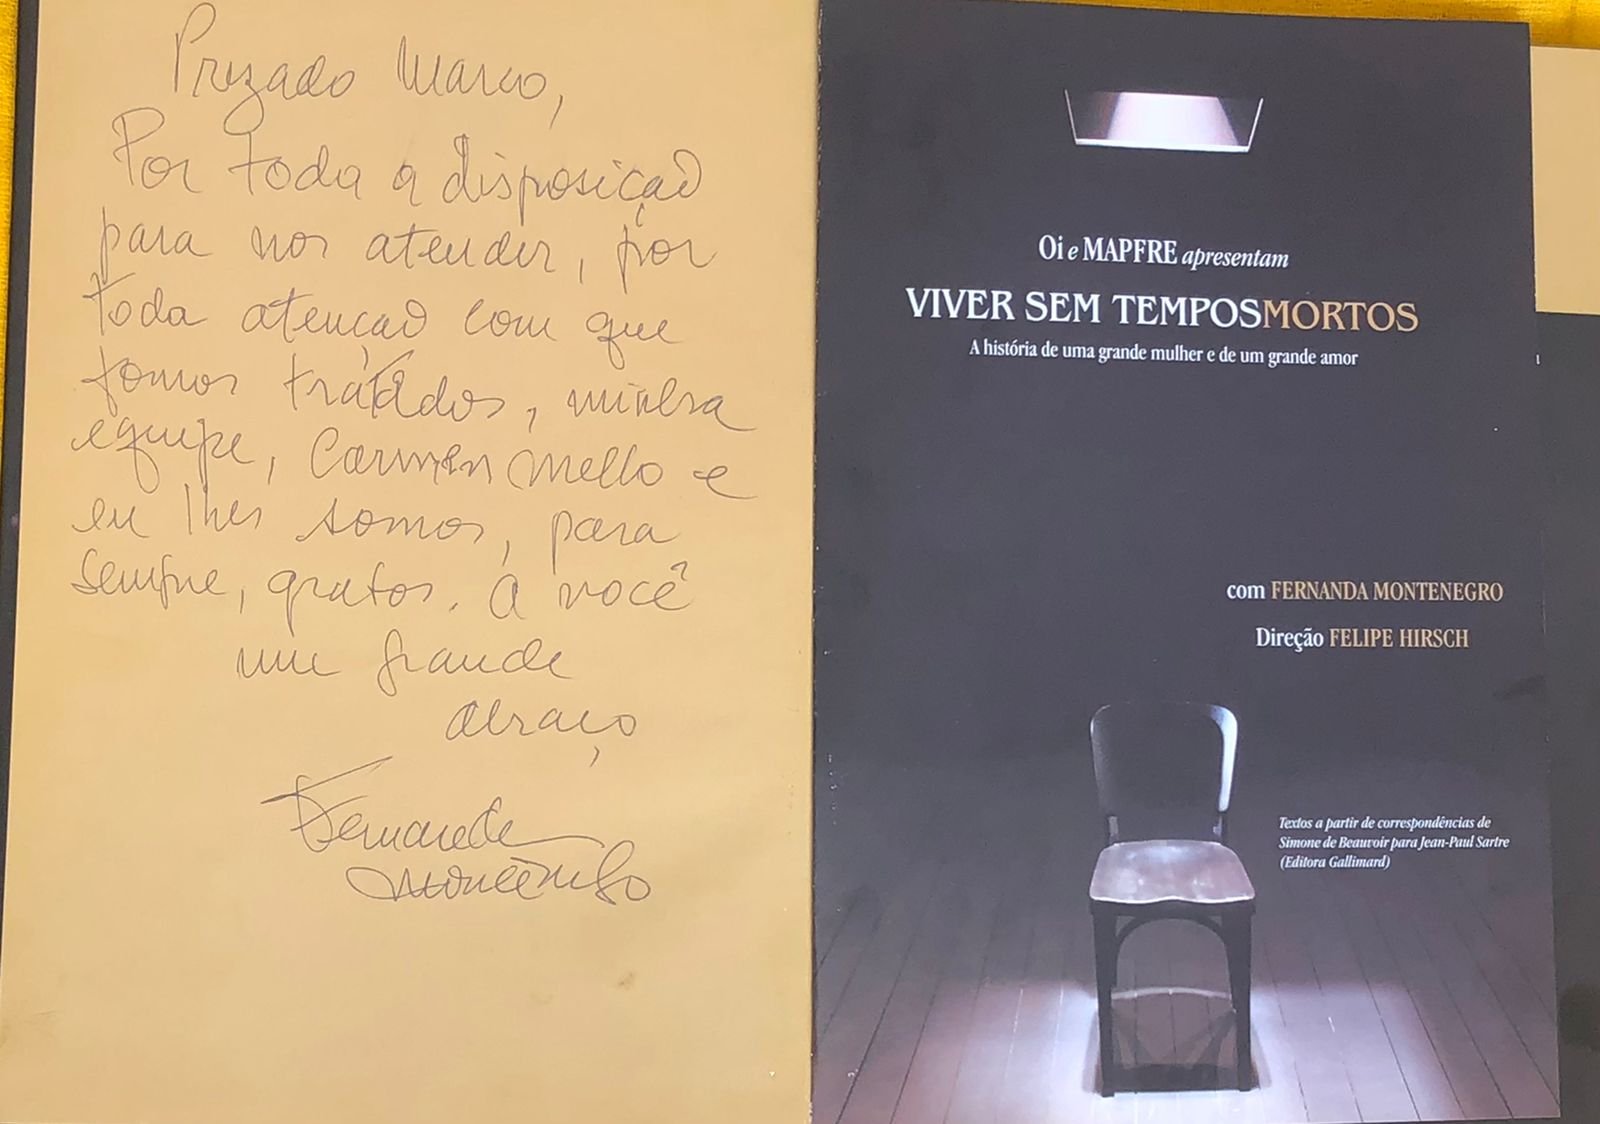 Prezado Marco,
Por toda a disposição
para nos atender, por
toda atenção com que
fomos tratados, minha
equipe, Carmen Mello e
eu lhes somos, para
sempre, gratos. A você
um grande
abraço
Fernanda
Montenegro
Oi e MAPFRE apresentam
VIVER SEM TEMPOSMORTOS
A história de uma grande mulher e de um grande amor
com FERNANDA MONTENEGRO
Direção FELIPE HIRSCH
Textos a partir de correspondências de
Simone de Beauvoir para Jean-Paul Sartre
(Editora Gallimard)